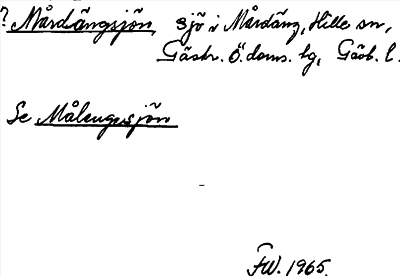 ? Mårdängsjön sjö i Mårdäng, Hille sn,
Gästr. Ö. doms. lg, Gävb. l.
Se Målengssjön
FW. 1965.